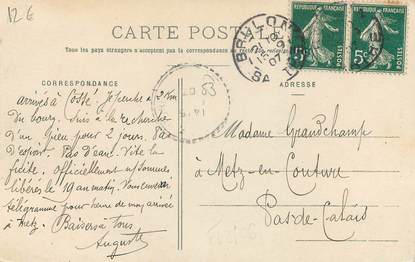 12€
CARTE POSTALE
Tous les pays étrangers n'acceptent pas la correspondance au recto
CORRESPONDANCE
ADRESSE
BRULON
07
RÉPUBLIQUE FRANÇAISE
POSTES
5c
RÉPUBLIQUE FRANÇAISE
POSTES
5c
arrivés à Cossé. Je perche à 2 Km
du bourg. Suis à la recherche
d'un pieu pour 2 jours. Pas
d'espoir. Pas d'eau. Vite la
fuite. Officiellement sommes
libérés le 19 au matin. Vous enverrai
télégramme pour heure de mon arrivée
à Metz. Baisers à tous
Auguste
Madame Grandchamp
à Metz-en-Couture
Pas-de-Calais